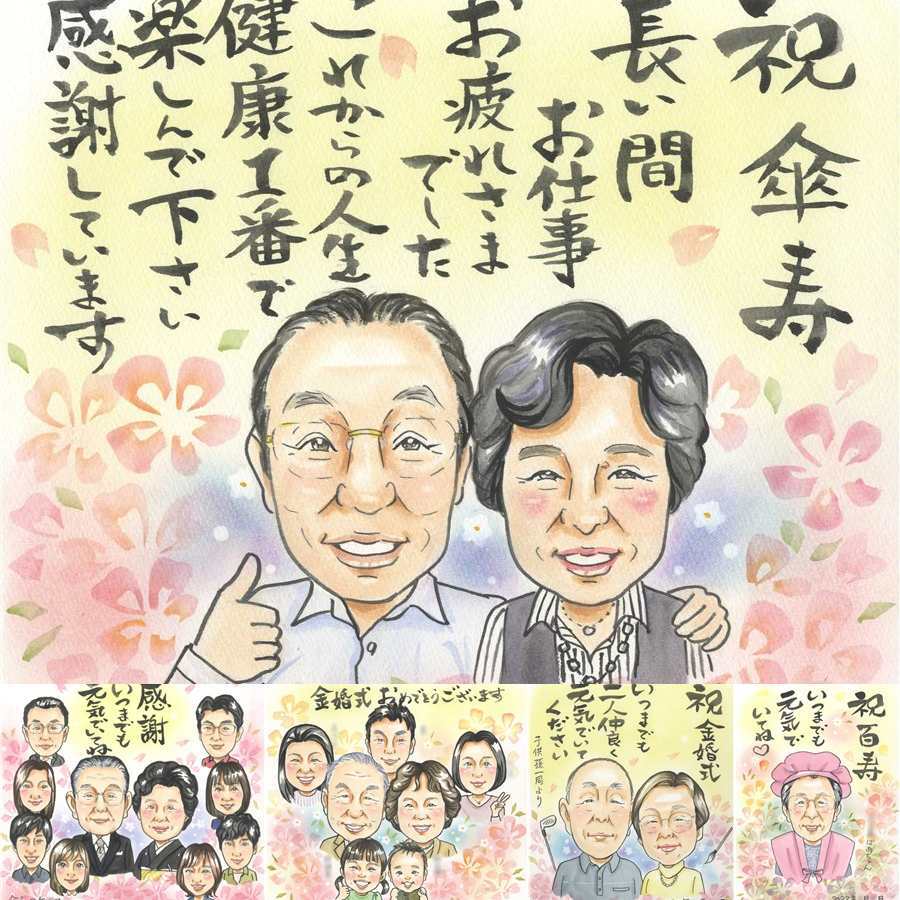 祝傘寿
長い間
お仕事
お疲れさま
でした
これからの人生
健康工番で
楽しんで下さい
感謝しています
感謝
いつまでも
元気でいてね
金婚式おめでとうございます
祝金婚式
いつまでも
二人仲良く
元気でいて
ください
子供孫一同より
祝百寿
いつまでも
元気で
いてね♡